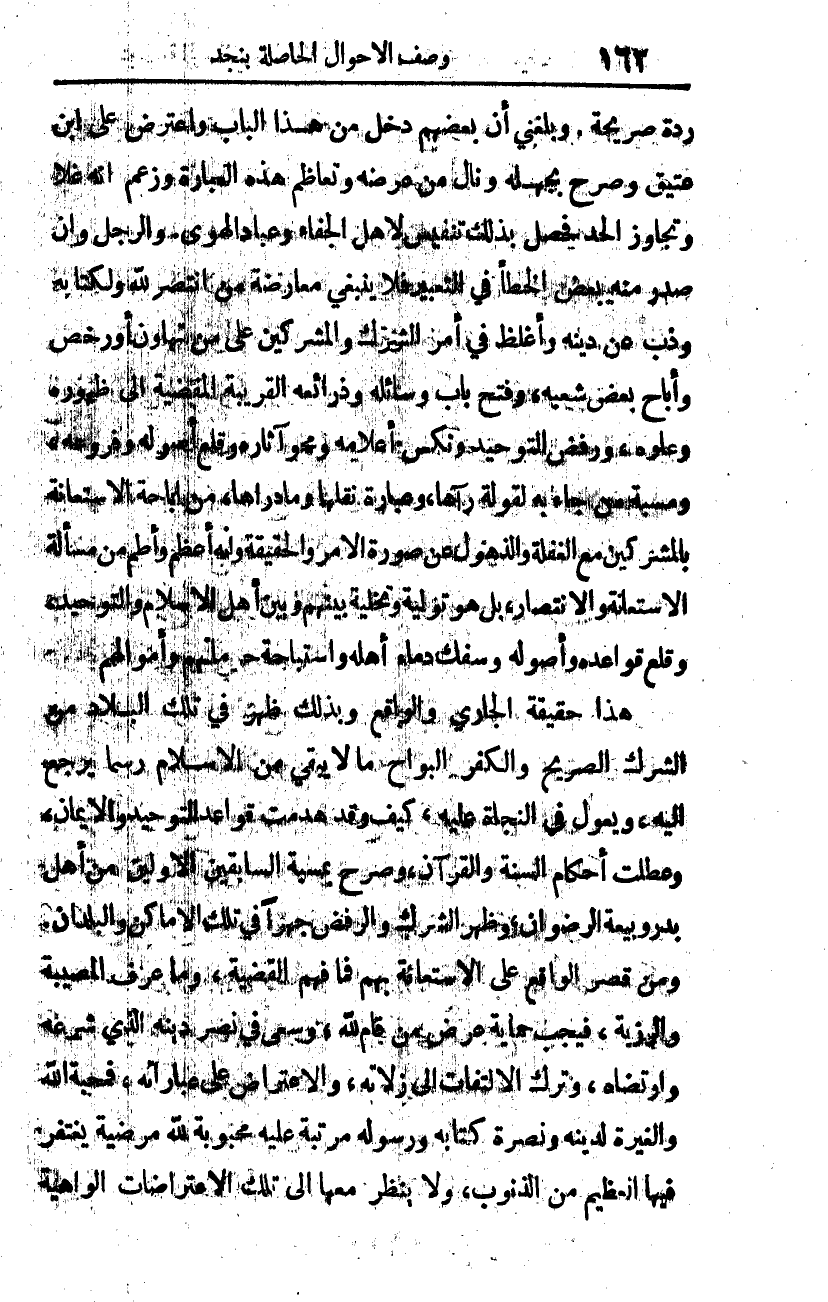 ١٦٣ وصف الاحوال الحاصلة بنجد
ردة صريحة . وبلغني أن بعضهم دخل من هذا الباب واعترض على ابن
عتيق وصرح بجهله ونال من عرضه وتعاظم هذه العبارة وزعم انه غلا
وتجاوز الحد فحصل بذلك تنفيس لاهل الجفاء وعباد الهوى. والرجل وان
صدر منه بعض الخطأ في التعبير فلا ينبغي معارضة من انتصر لله ولكتابه
وذب عن دينه وأغلظ في أمر الشرك والمشركين على من تهاون أو رخص
وأباح بعض شعبه، وفتح باب وسائله وذرائعه القريبة المفضية الى ظهوره
وعلوه، ورفض التوحيد ونكس أعلامه ومحو آثاره وقلع أصوله وفروعه،
ومسبة من جاء به لقولة رآها، وعبارة نقلها وما دراها، من إباحة الاستعانة
بالمشركين مع الغفلة والذهول عن صورة الامر والحقيقة وانه أعظم وأطم من مسألة
الاستعانة والانتصار، بل هو تولية وتخلية بينهم وبين أهل الاسلام والتوحيد،
وقلع قواعده وأصوله وسفك دماء أهله واستباحة حرماتهم وأموالهم
هذا حقيقة الجاري والواقع وبذلك ظهر في تلك البلاد من
الشرك الصريح والكفر البواح ما لا يبقي من الاسلام رسما يرجع
اليه، ويعول في النجاة عليه، كيف وقد هدمت قواعد التوحيد والايمان،
وعطلت أحكام السنة والقرآن، وصرح بمسبة السابقين الاولين من أهل
بدر وبيعة الرضوان، وظهر الشرك والرفض جهراً في تلك الاماكن والبلدان.
ومن قصر الواقع على الاستعانة بهم فما فهم القضية، وما عرف المصيبة
والرزية، فيجب حماية عرض من قام لله، وسعى في نصر دينه الذي شرعه
وارتضاه، وترك الالتفات الى زلاته، والاعتراض على عباراته، فمحبة الله
والغيرة لدينه ونصرة كتابه ورسوله مرتبة عليه محبوبة لله مرضية يغتفر
فيها العظيم من الذنوب، ولا ينظر معها الى تلك الاعتراضات الواهية